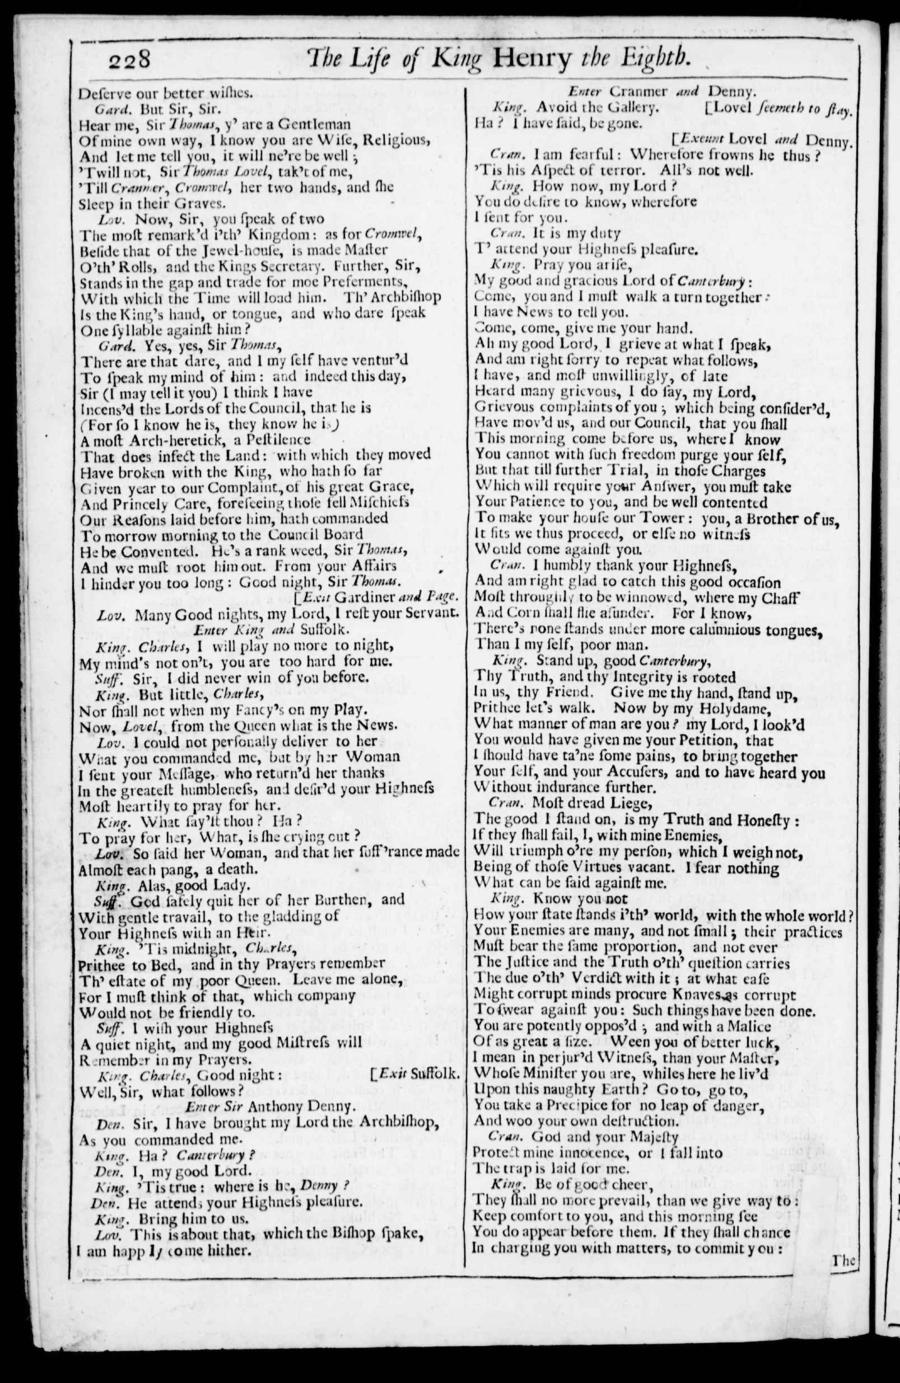 228
The Life of King Henry the Eighth.
Deſerve our better wiſhes.
Gard. But Sir, Sir.
Hear me, Sir Thomas, y' are a Gentleman
Of mine own way, I know you are Wiſe, Religious,
And let me tell you, it will ne're be well;
'Twill not, Sir Thomas Lovel, tak't of me,
'Till Cranmer, Cromwel, her two hands, and ſhe
Sleep in their Graves.
Lov. Now, Sir, you ſpeak of two
The moſt remark'd i'th' Kingdom: as for Cromwel,
Beſide that of the Jewel-houſe, is made Maſter
O'th' Rolls, and the Kings Secretary. Further, Sir,
Stands in the gap and trade for moe Preferments,
With which the Time will load him. Th' Archbiſhop
Is the King's hand, or tongue, and who dare ſpeak
One ſyllable againſt him?
Gard. Yes, yes, Sir Thomas,
There are that dare, and I my ſelf have ventur'd
To ſpeak my mind of him: and indeed this day,
Sir (I may tell it you) I think I have
Incens'd the Lords of the Council, that he is
(For ſo I know he is, they know he is)
A moſt Arch-heretick, a Peſtilence
That does infect the Land: with which they moved
Have broken with the King, who hath ſo far
Given year to our Complaint, of his great Grace,
And Princely Care, foreſeeing thoſe fell Miſchiefs
Our Reaſons laid before him, hath commanded
To morrow morning to the Council Board
He be Convented. He's a rank weed, Sir Thomas,
And we muſt root him out. From your Affairs
I hinder you too long: Good night, Sir Thomas.
[Exit Gardiner and Page.
Lov. Many Good nights, my Lord, I reſt your Servant.
Enter King and Suffolk.
King. Charles, I will play no more to night,
My mind's not on't, you are too hard for me.
Suff. Sir, I did never win of you before.
King. But little, Charles,
Nor ſhall not when my Fancy's on my Play.
Now, Lovel, from the Queen what is the News.
Lov. I could not perſonally deliver to her
What you commanded me, but by her Woman
I ſent your Meſſage, who return'd her thanks
In the greateſt humbleneſs, and deſir'd your Highneſs
Moſt heartily to pray for her.
King. What ſay'ſt thou? Ha?
To pray for her, What, is ſhe crying out?
Lov. So ſaid her Woman, and that her ſuff'rance made
Almoſt each pang, a death.
King. Alas, good Lady.
Suff. God ſafely quit her of her Burthen, and
With gentle travail, to the gladding of
Your Highneſs with an Heir.
King. 'Tis midnight, Charles,
Prithee to Bed, and in thy Prayers remember
Th' eſtate of my poor Queen. Leave me alone,
For I muſt think of that, which company
Would not be friendly to.
Suff. I wiſh your Highneſs
A quiet night, and my good Miſtreſs will
Remember in my Prayers.
King. Charles, Good night: [Exit Suffolk.
Well, Sir, what follows?
Enter Sir Anthony Denny.
Den. Sir, I have brought my Lord the Archbiſhop,
As you commanded me.
King. Ha? Canterbury?
Den. I, my good Lord.
King. 'Tis true: where is he, Denny?
Den. He attends your Highneſs pleaſure.
King. Bring him to us.
Lov. This is about that, which the Biſhop ſpake,
I am happily come hither.
Enter Cranmer and Denny.
King. Avoid the Gallery. [Lovel ſeemeth to ſtay.
Ha? I have ſaid, be gone.
[Exeunt Lovel and Denny.
Cran. I am fearful: Wherefore frowns he thus?
'Tis his Aſpect of terror. All's not well.
King. How now, my Lord?
You do deſire to know, wherefore
I ſent for you.
Cran. It is my duty
T' attend your Highneſs pleaſure.
King. Pray you ariſe,
My good and gracious Lord of Canterbury:
Come, you and I muſt walk a turn together:
I have News to tell you.
Come, come, give me your hand.
Ah my good Lord, I grieve at what I ſpeak,
And am right ſorry to repeat what follows,
I have, and moſt unwillingly, of late
Heard many grievous, I do ſay, my Lord,
Grievous complaints of you; which being conſider'd,
Have mov'd us, and our Council, that you ſhall
This morning come before us, where I know
You cannot with ſuch freedom purge your ſelf,
But that till further Trial, in thoſe Charges
Which will require your Anſwer, you muſt take
Your Patience to you, and be well contented
To make your houſe our Tower: you, a Brother of us,
It fits we thus proceed, or elſe no witneſs
Would come againſt you.
Cran. I humbly thank your Highneſs,
And am right glad to catch this good occaſion
Moſt throughly to be winnowed, where my Chaff
And Corn ſhall flie aſunder. For I know,
There's none ſtands under more calumnious tongues,
Than I my ſelf, poor man.
King. Stand up, good Canterbury,
Thy Truth, and thy Integrity is rooted
In us, thy Friend. Give me thy hand, ſtand up,
Prithee let's walk. Now by my Holydame,
What manner of man are you? my Lord, I look'd
You would have given me your Petition, that
I ſhould have ta'ne ſome pains, to bring together
Your ſelf, and your Accuſers, and to have heard you
Without indurance further.
Cran. Moſt dread Liege,
The good I ſtand on, is my Truth and Honeſty:
If they ſhall fail, I, with mine Enemies,
Will triumph o're my perſon, which I weigh not,
Being of thoſe Virtues vacant. I fear nothing
What can be ſaid againſt me.
King. Know you not
How your ſtate ſtands i'th' world, with the whole world?
Your Enemies are many, and not ſmall; their practices
Muſt bear the ſame proportion, and not ever
The Juſtice and the Truth o'th' queſtion carries
The due o'th' Verdict with it; at what eaſe
Might corrupt minds procure Knaves as corrupt
To ſwear againſt you: Such things have been done.
You are potently oppos'd; and with a Malice
Of as great a ſize. Ween you of better luck,
I mean in perjur'd Witneſs, than your Maſter,
Whoſe Miniſter you are, whiles here he liv'd
Upon this naughty Earth? Go to, go to,
You take a Precipice for no leap of danger,
And woo your own deſtruction.
Cran. God and your Majeſty
Protect mine innocence, or I fall into
The trap is laid for me.
King. Be of good cheer,
They ſhall no more prevail, than we give way to:
Keep comfort to you, and this morning ſee
You do appear before them. If they ſhall chance
In charging you with matters, to commit you:
The